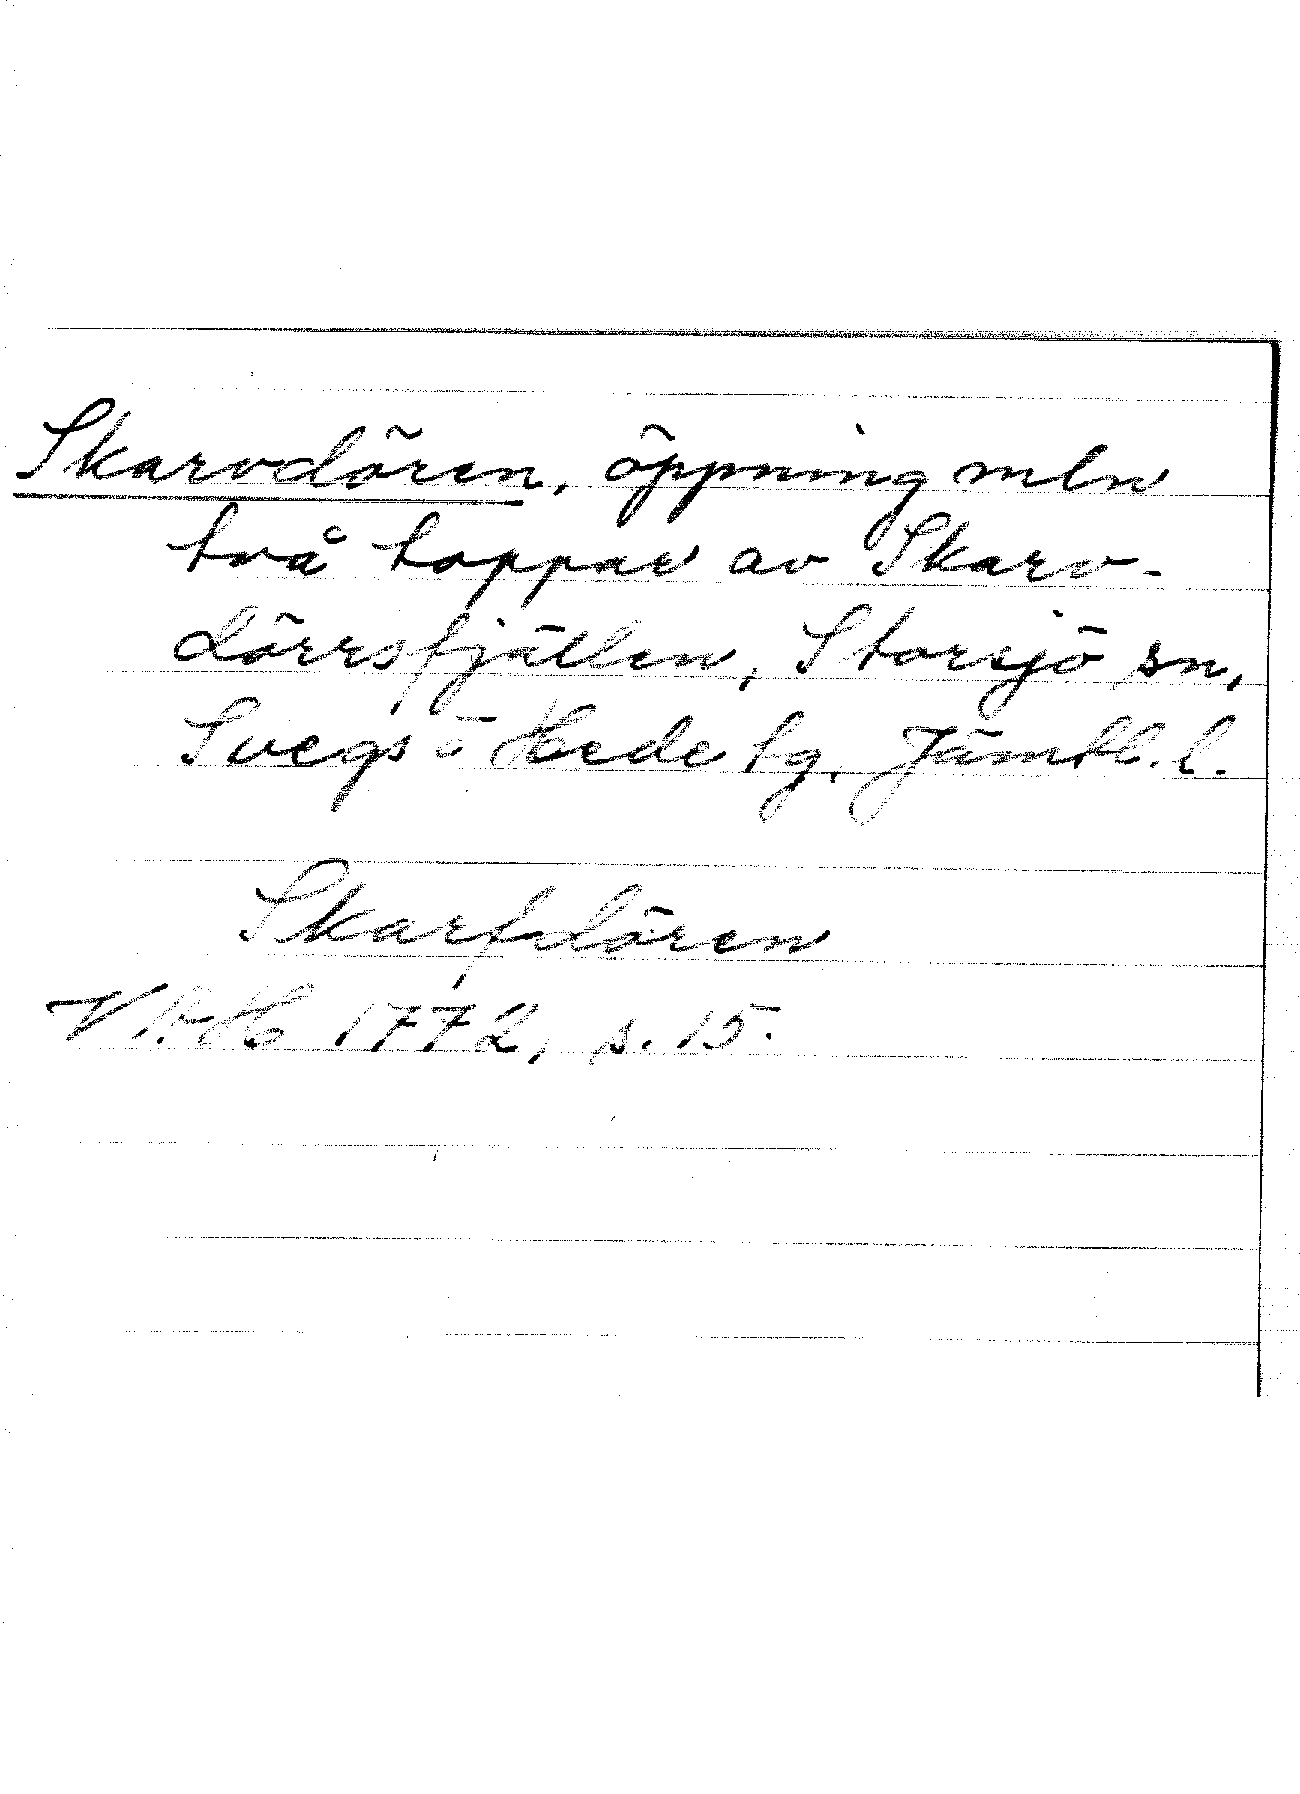 Skarvdören, öppning mln
två toppar av Skarv-
dörrsfjällen, Storsjö sn,
Svegs o Hede tg, Jämtl. l.
Skarfdören
VAH 1772, s. 15.